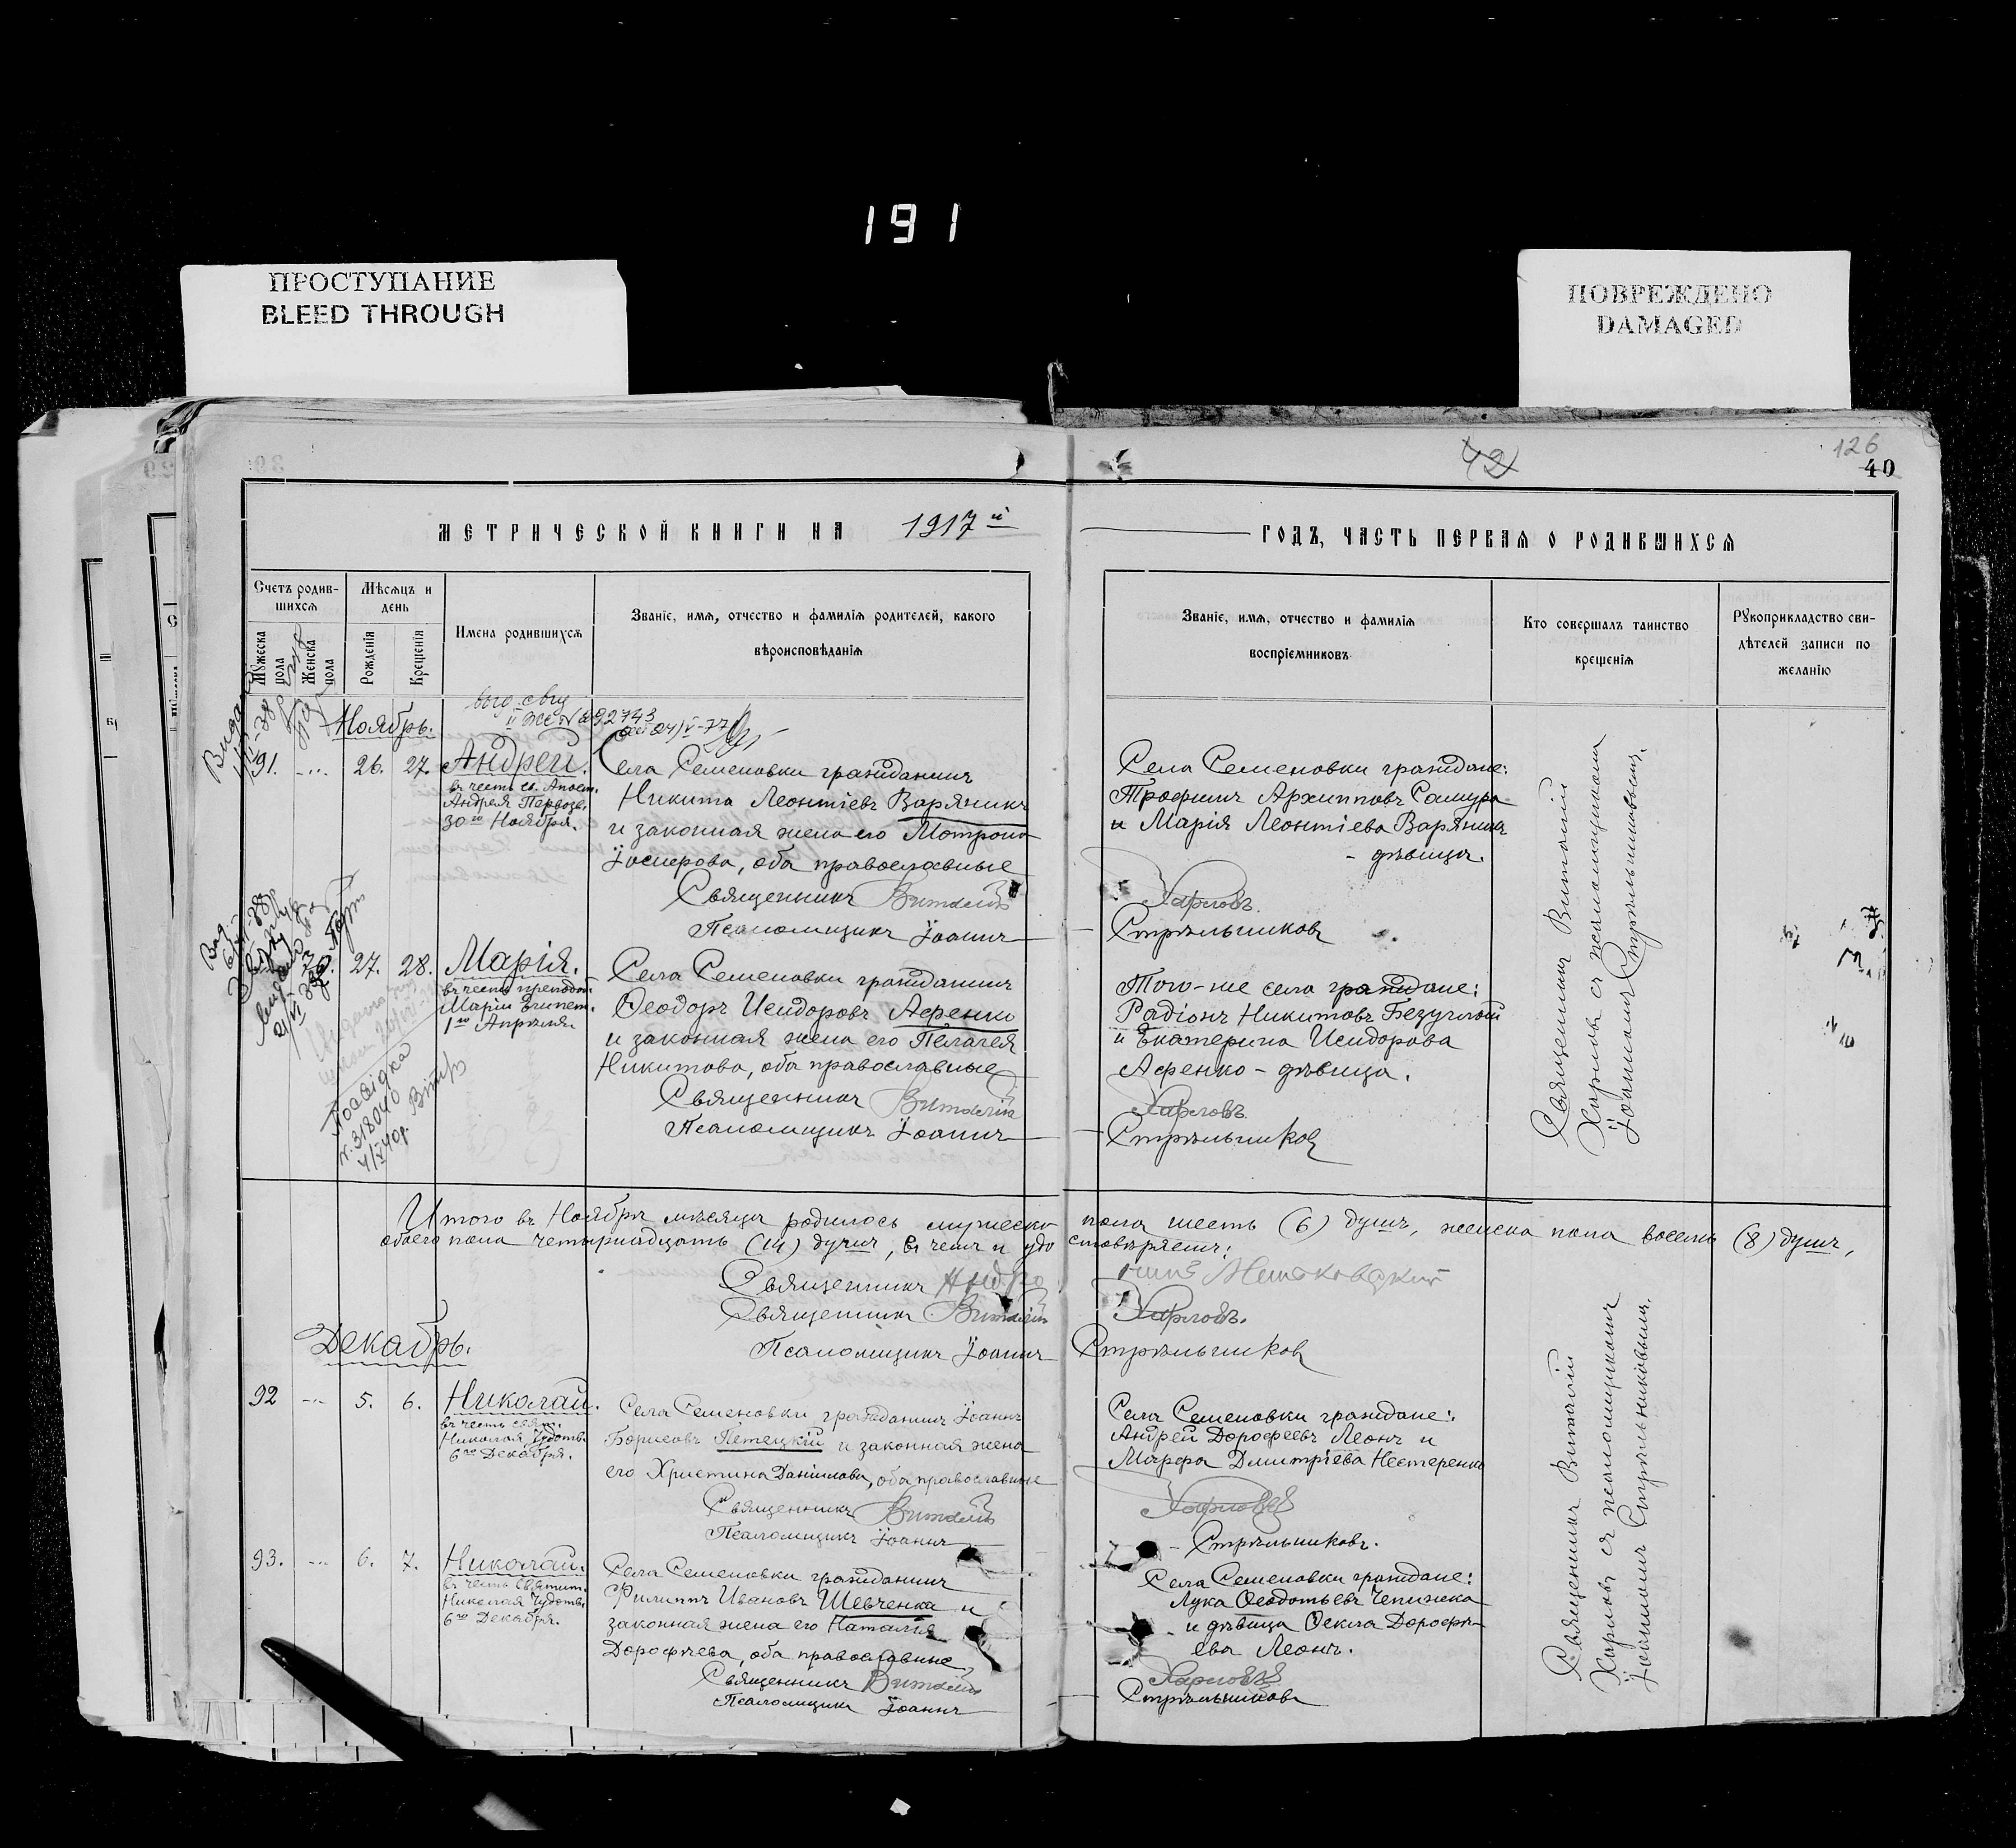 191
ПРОСТУПАНИЕ
BLEED THROUGH
ПОВРЕЖДЕНО
DAMAGED
42
126
40
МЕТРИЧЕСКОЙ КНИГИ НА 1917й ГОДЪ, ЧАСТЬ ПЕРВАЯ О РОДИВШИХСЯ
Счетъ родив-
шихся
Мужеска
пола
Женска
пола
Мѣсяцъ и
день
Рожденія
Крещенія
Имена родившихся
Званіе, имя, отчество и фамилія родителей, какого
вѣроисповѣданія
Званіе, имя, отчество и фамилія
воспріемниковъ
Кто совершалъ таинство
крещенія
Рукоприкладство сви-
дѣтелей записи по
желанію
Ноябрь.
91. 26. 27. Андрей.
въ честь св. Апост.
Андрея Первозв.
30го Ноября.
Села Семеновки гражданинъ
Никита Леонтіевъ Варяникъ
и законная жена его Мотрона
Іосифова, оба православные
Священникъ Виталій
Псаломщикъ Іоаннъ
Села Семеновки граждане:
Трофимъ Архипповъ Самура
и Марія Леонтіева Варяникъ
- дѣвица.
Харловъ
Стрѣльниковъ
27. 28. Марія.
въ честь преподоб.
Маріи Египет.
1го Апрѣля
Села Семеновки гражданинъ
Ѳеодоръ Исидоровъ Асренко
и законная жена его Пелагея
Никитова, оба православные
Священникъ Виталій
Псаломщикъ Іоаннъ
Того-же села граждане:
Радіонъ Никитовъ Безуглый
и Екатерина Исидорова
Асренко - дѣвица.
Харловъ
Стрѣльниковъ
Священникъ Виталій
Харловъ съ псаломщикомъ
Іоанномъ Стрѣльниковымъ.
Посвідка
№ 318040
Итого въ Ноябрѣ мѣсяцѣ родилось мужеска пола шесть (6) душъ, женска пола восемь (8) душъ,
обоего пола четырнадцать (14) душъ, въ чемъ и удостовѣряемъ:
Священникъ
Священникъ Виталій Харловъ.
Псаломщикъ Іоаннъ Стрѣльниковъ
Декабрь.
92 5. 6. Николай.
въ честь свят.
Николая Чудотв.
6го Декабря.
Села Семеновки гражданинъ Іоаннъ
Борисовъ Петецкій и законная жена
его Христина Даніилова, оба православные
Священникъ Виталій
Псаломщикъ Іоаннъ
Села Семеновки граждане:
Андрей Дорофеевъ Леонъ и
Марфа Димитріева Нестеренко
Харловъ
Стрѣльниковъ.
93. 6. 7. Николай.
въ честь Святит.
Николая Чудотв.
6го Декабря.
Села Семеновки гражданинъ
Филиппъ Ивановъ Шевченко и
законная жена его Наталія
Дорофѣева, оба православные
Священникъ Виталій
Псаломщикъ Іоаннъ
Села Семеновки граждане:
Лука Ѳеодотьевъ Чепижка
и дѣвица Ѳекла Дорофѣ-
ева Леонъ.
Харловъ
Стрѣльниковъ
Священникъ Виталій
Харловъ съ псаломщикомъ
Іоанномъ Стрѣльниковымъ.